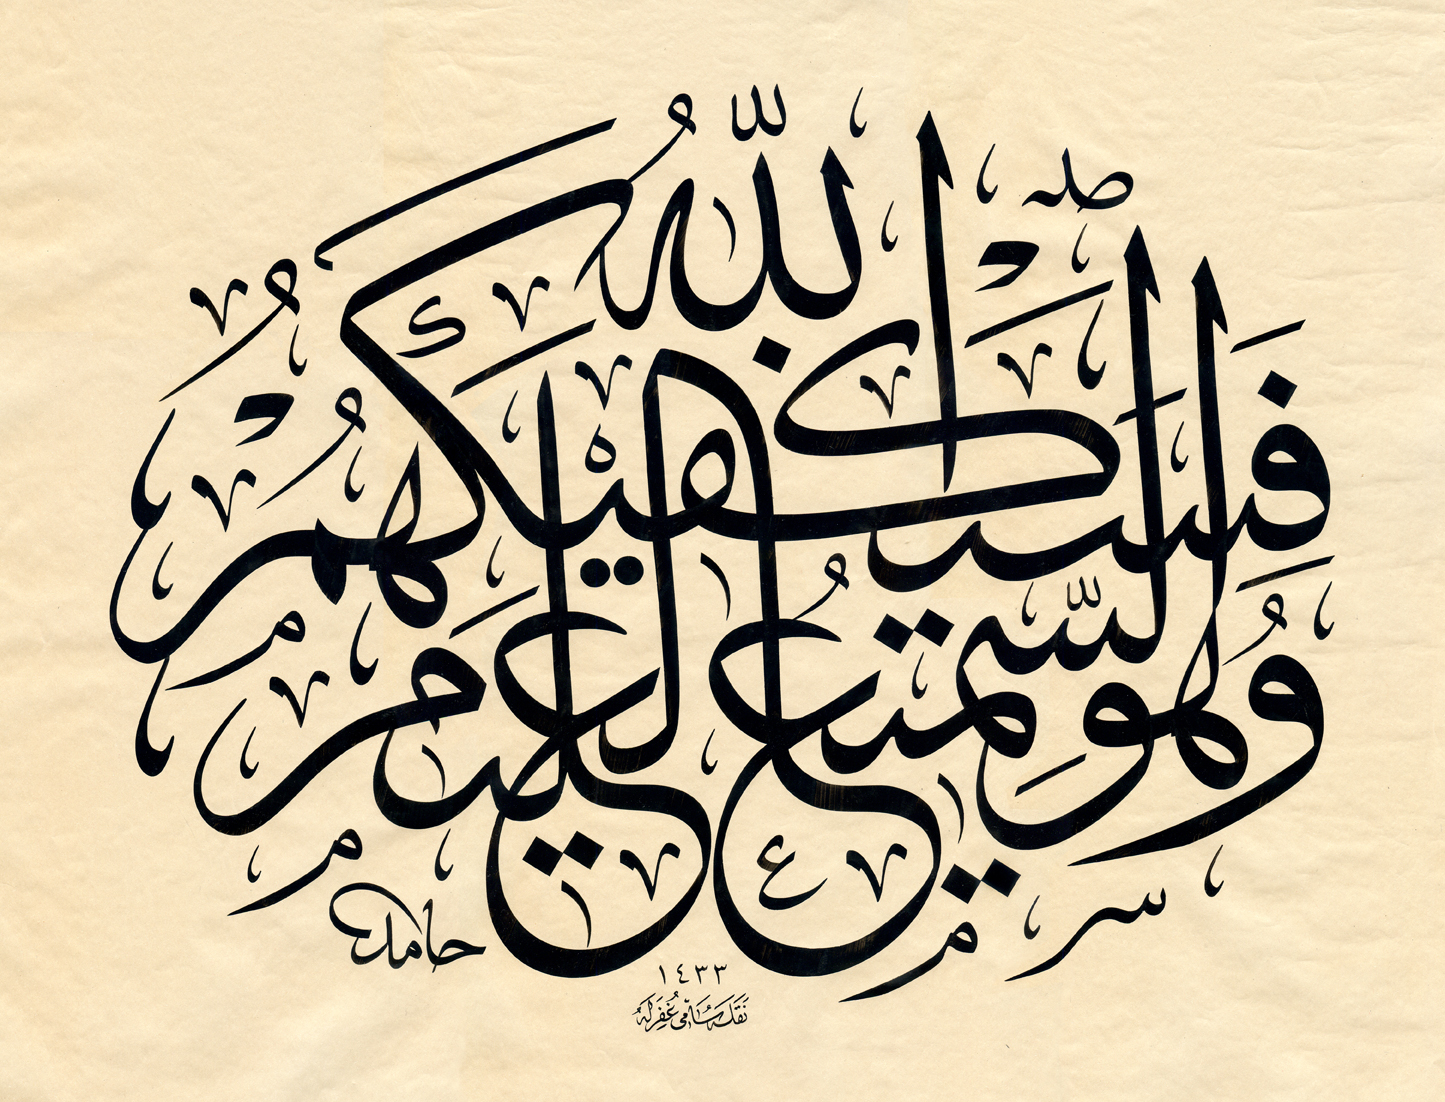 فَسَيَكْفِيكَهُمُ اللّٰهُ
وَهُوَ السَّمِيعُ الْعَلِيمُ
حامد
١٤٣٣
نَقَلَهُ سَامِي غُفِرَ لَهُ